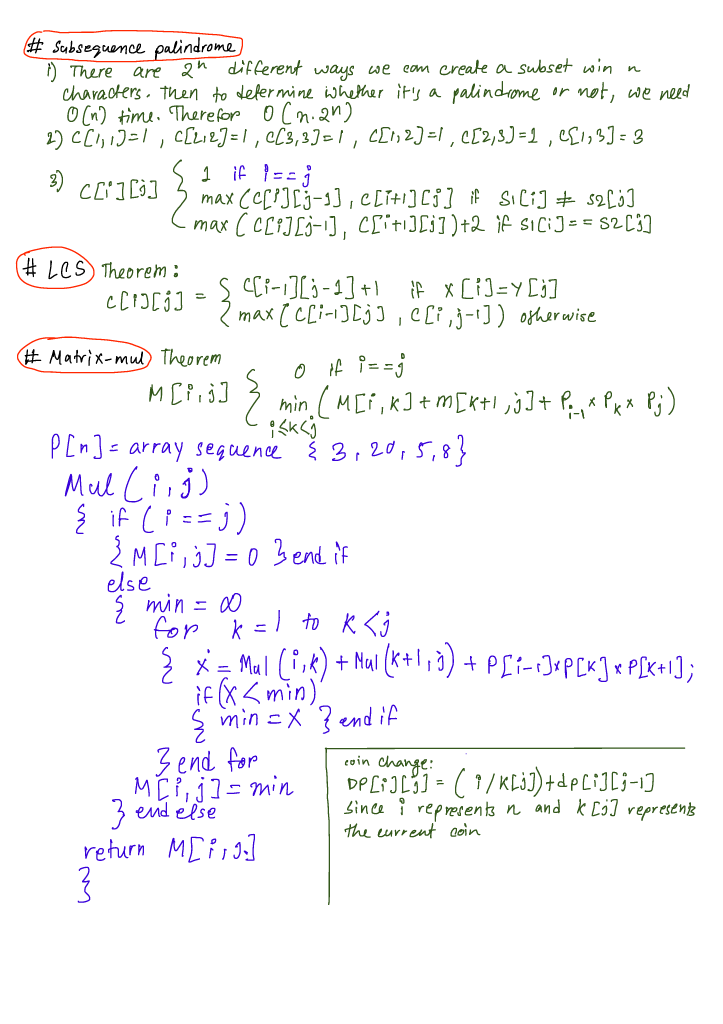 # Subsequence palindrome
1) There are 2^n different ways we can create a subset win n
characters. Then to determine whether it's a palindrome or not, we need
O(n) time. Therefor O(n.2^n)
2) C[1,1]=1, C[2,2]=1, C[3,3]=1, C[1,2]=1, C[2,3]=1, C[1,3]=3
3) C[i][j] { 1 if i==j
max(C[i][j-1], C[i+1][j] if S1[i] ≠ S2[j]
max(C[i][j-1], C[i+1][j])+2 if S1[i]==S2[j]
# LCS Theorem:
C[i][j] = { C[i-1][j-1]+1 if X[i]=Y[j]
max[C[i-1][j], C[i,j-1]) otherwise
# Matrix-mul Theorem
M[i,j] { 0 if i==j
min (M[i,k]+m[k+1,j]+P_{i-1}×P_k×P_j)
i≤k<j
P[n]= array sequence {3,20,5,8}
Mul(i,j)
{ if(i==j)
{M[i,j]=0 } end if
else
{ min = ∞
for k=1 to k<j
{ x = Mul(i,k)+Mul(k+1,j)+P[i-1]×P[k]×P[k+1];
if(x<min)
{ min=x } end if
} end for
M[i,j]=min
} end else
return M[i,j]
}
coin change:
DP[i][j]=(i/K[j])+dp[i][j-1]
Since i represents n and k[j] represents
the current coin